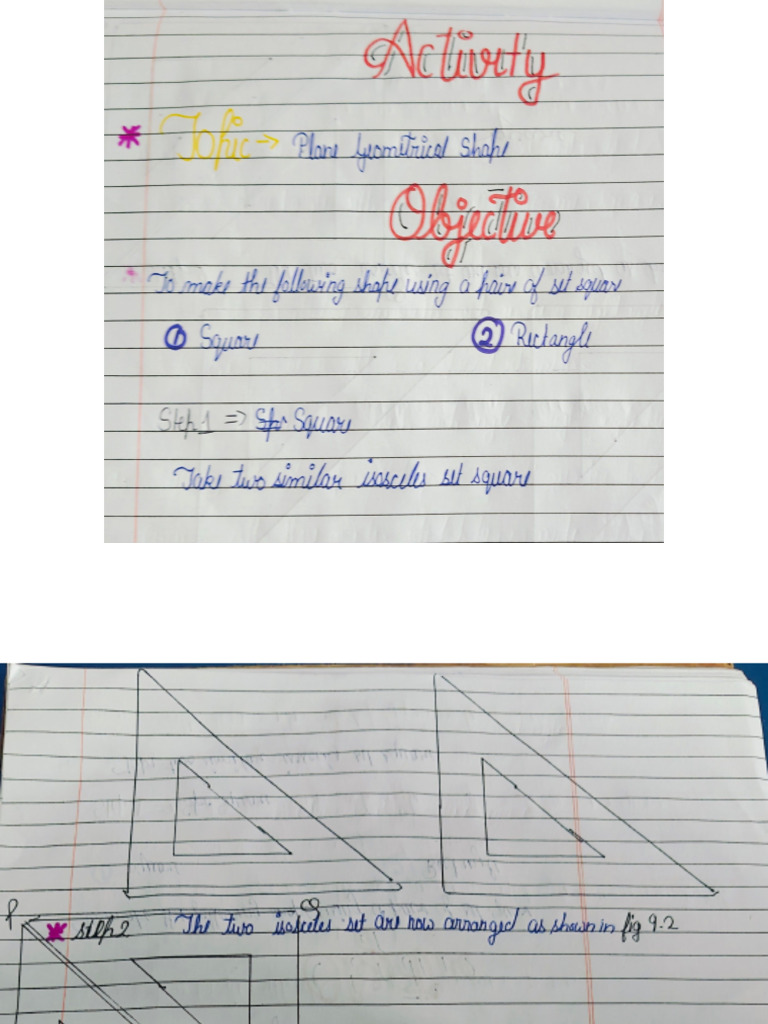 Activity
* Topic → Plane Geometrical Shape
Objective
* To make the following shape using a pair of set square
① Square ② Rectangle
Step 1 ⇒ Square
Take two similar isosceles set square
P Q
* step 2 The two isosceles set are now arranged as shown in fig 9.2